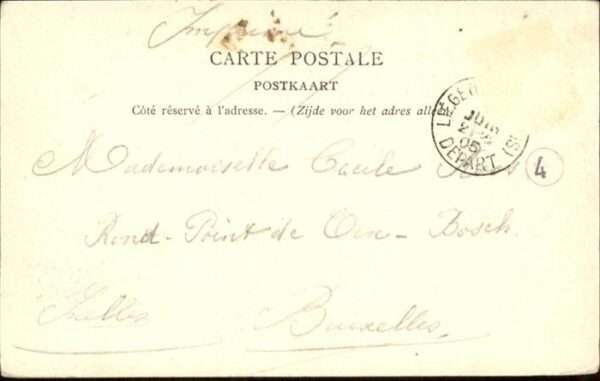 Imprimé
CARTE POSTALE
POSTKAART
Côté réservé à l'adresse. — (Zijde voor het adres alleen
LIÉGE
JUIN
05
DÉPART
4
Mademoiselle Cécile
Rond-Point de Bosch.
Ixelles
Bruxelles